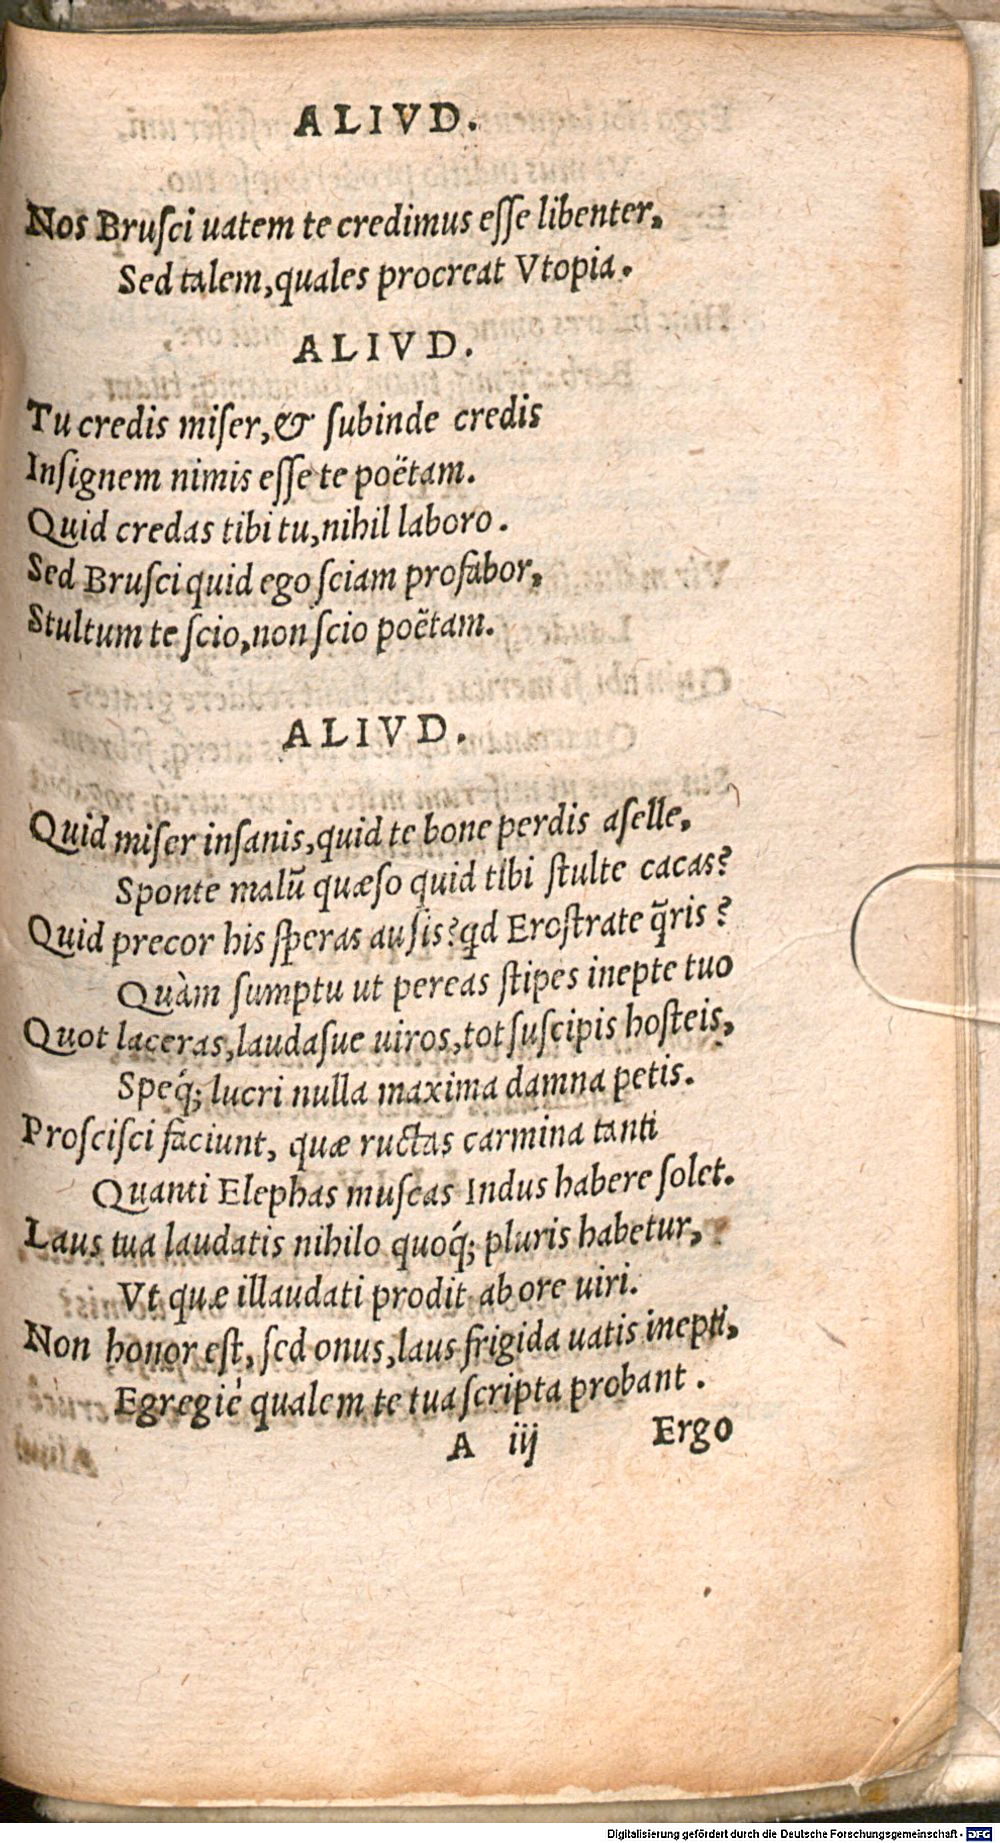 ALIVD.
Nos Bruſci uatem te credimus eſſe libenter,
Sed talem, quales procreat Vtopia.
ALIVD.
Tu credis miſer, & ſubinde credis
Inſignem nimis eſſe te poëtam.
Quid credas tibi tu, nihil laboro.
Sed Bruſci quid ego ſciam profabor,
Stultum te ſcio, non ſcio poëtam.
ALIVD.
Quid miſer inſanis, quid te bone perdis aſelle,
Sponte malũ quæſo quid tibi ſtulte cacas?
Quid precor his ſperas auſis? qd Eroſtrate q̃ris?
Quàm ſumptu ut pereas ſtipes inepte tuo
Quot laceras, laudaſue uiros, tot ſuſcipis hoſteis,
Speq́; lucri nulla maxima damna petis.
Proſciſci faciunt, quæ ructas carmina tanti
Quanti Elephas muſcas Indus habere ſolet.
Laus tua laudatis nihilo quoq́; pluris habetur,
Vt quæ illaudati prodit ab ore uiri.
Non honor eſt, ſed onus, laus frigida uatis inepti,
Egregiè qualem te tua ſcripta probant.
A iij Ergo
Digitalisierung gefördert durch die Deutsche Forschungsgemeinschaft - DFG